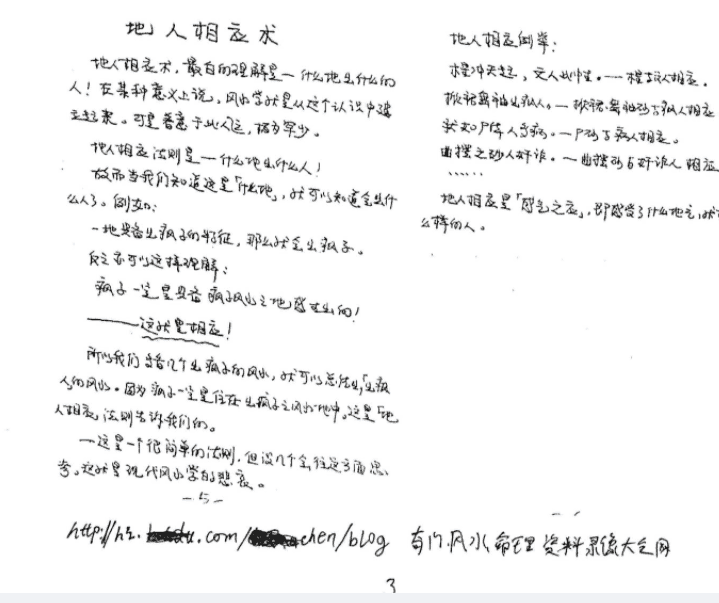 地人相应术
地人相应术，最白的理解是一什么地出什么的
人！在某种意义上说，风水学就是从这个认识中建
立起来。可是着意于此人运，极为罕少。
地人相应法则是一什么地出什么人！
故而当我们知道这是「什么地」，就可以知道会出什
么人了。例如：
一地具备出疯子的特征，那么就会出疯子。
反之亦可以这样理解：
疯子一定是具备疯子风水之地感生出的！
——这就是相应！
所以我们多看几个出疯子的风水，就可以总结出「出疯
人」的风水。因为疯子一定是住在出疯子之风水地中。这是「地
人相应」法则告诉我们的。
一这是一个很简单的法则，但没几个会往这方面思
考。这就是现代风水学的悲哀。
-5-
http://hi. .com/ chen/blog 有门风水命理资料录像大全网
3
地人相应例举：
冲天起，文人此中生。一 相应。
掀裙舞袖出 人。一掀裙舞袖砂与 人相应
状如尸体人多病。一尸砂与病人相应。
曲摆之砂人奸诈。一曲摆砂与奸诈人相应
……
地人相应是「感气之应」，即感受了什么地气，就
么样的人。